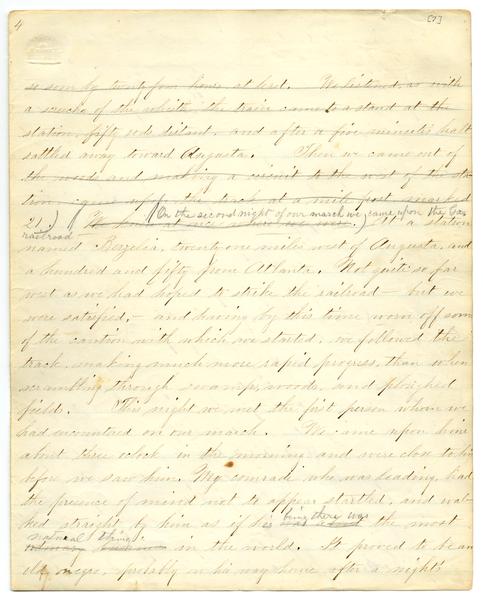 4
[7]
so soon by twenty four hours at least. We listened, as with
a screech of the whistle, the train came to a stand at the
station, fifty rods distant, and after a five minutes halt
rattled away toward Augusta. Then we came out of
the wood and making a circuit to the west of the sta-
tion, came upon the track at a mile post marked
21.) On the second night of our march we came upon the Geo
railroad
at a station
named Berzelia, twenty one miles west of Augusta, and
a hundred and fifty from Atlanta. Not quite so far
west as we had hoped to strike the railroad – but we
were satisfied, – and having by this time worn off some
of the caution with which we started, we followed the
track, making much more rapid progress, than when
scrambling through swamps, woods, and ploughed
fields. This night we met the first person whom we
had encountered on our march. We came upon him
about three oclock in the morning and were close to him
before we saw him. My comrade who was leading, had
the presence of mind not to appear startled, and wal-
ked straight by him as if his being there was the most
natural thing
in the world. It proved to be an
old negro, probably on his way home after a night's